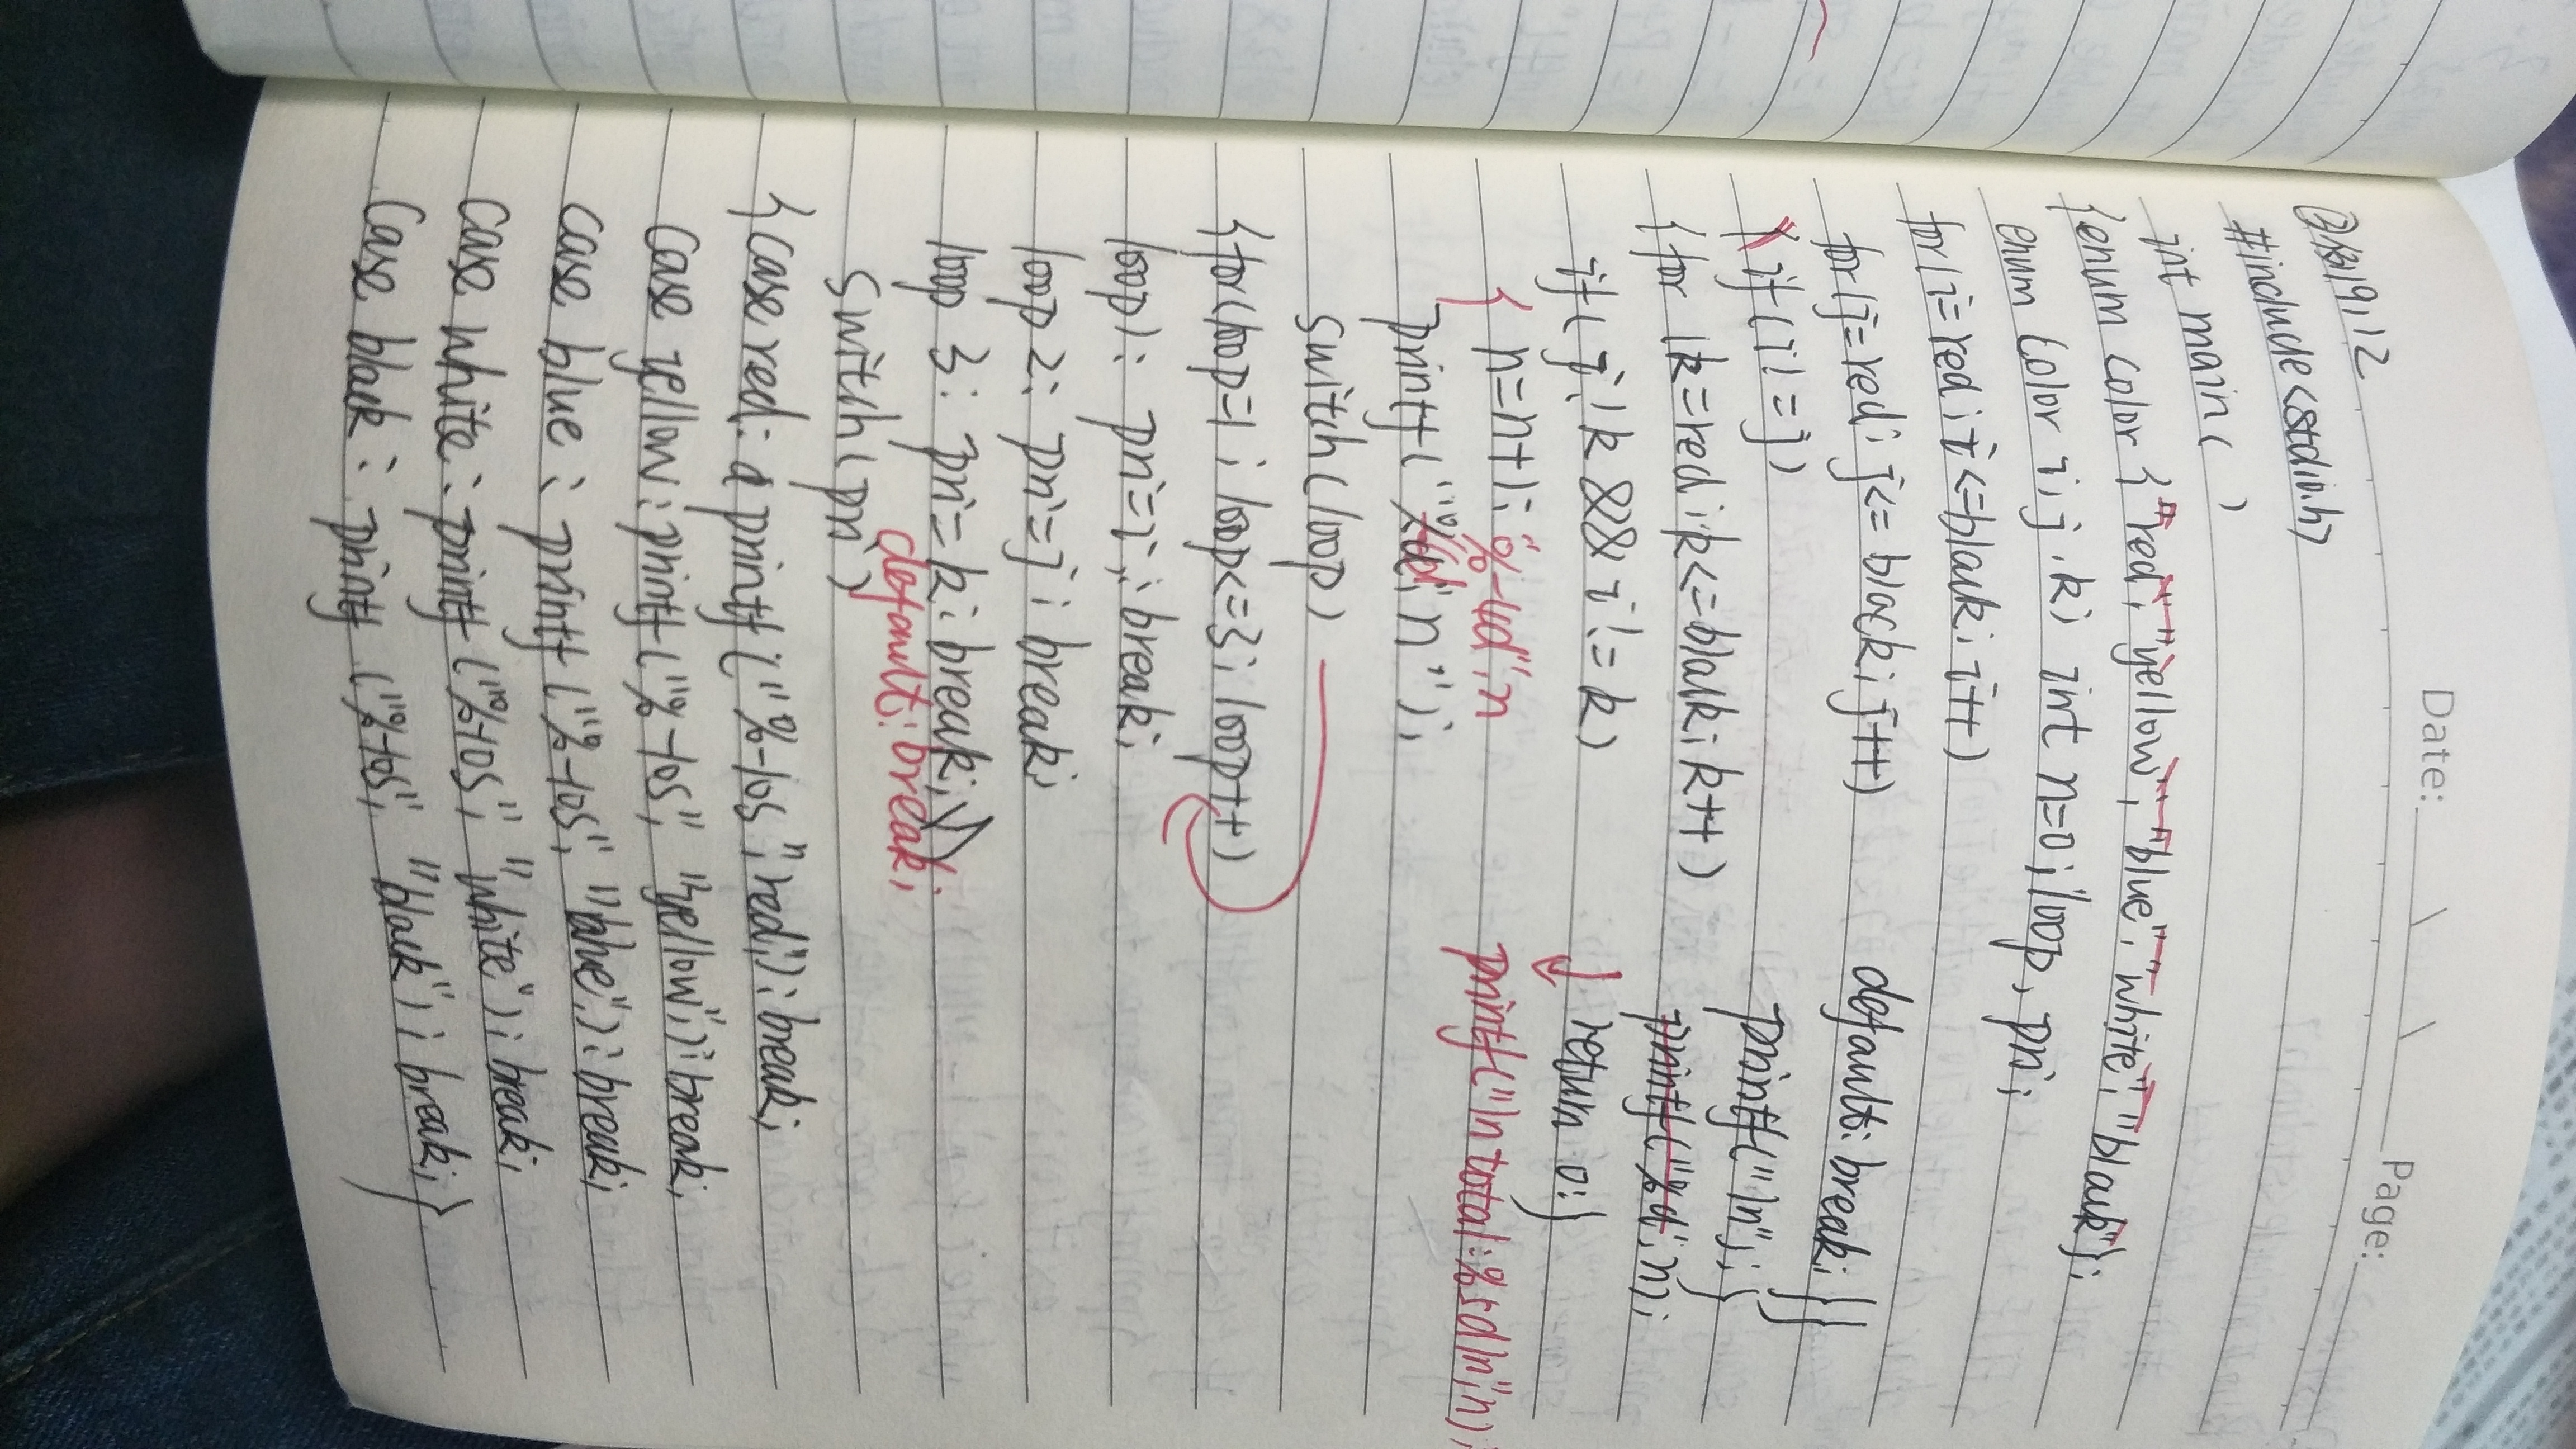 Date: \ \ Page:
③例9,12
#include<stdio.h>
int main( )
{enum color {"red", "yellow", "blue", "white", "black"};
enum color i,j,k; int n=0;loop, pri;
for(i=red;i<=black;i++)
for(j=red;j<=black;j++)
{if(i!=j)
{for (k=red;k<=black;k++)
if(j!k && i!=k)
{ n=n+1; "%-4d",n
printf("%d",n");
switch(loop)
{for(loop=1;loop<=3;loop++)
loop1: pri=i;break;
loop 2: pri=j;break;
loop 3: pri=k;break;}}
default:break;
switch(pri)
{case red: printf("%-10s","red");break;
case yellow:printf("%-10s","yellow");break;
case blue: printf("%-10s","blue");break;
case white: printf("%-10s","white");break;
case black: printf("%-10s","black");break;}
default:break;}}
printf("\n");}
printf("%d",n);
return 0;}
printf("\n total:%5d\n",n);